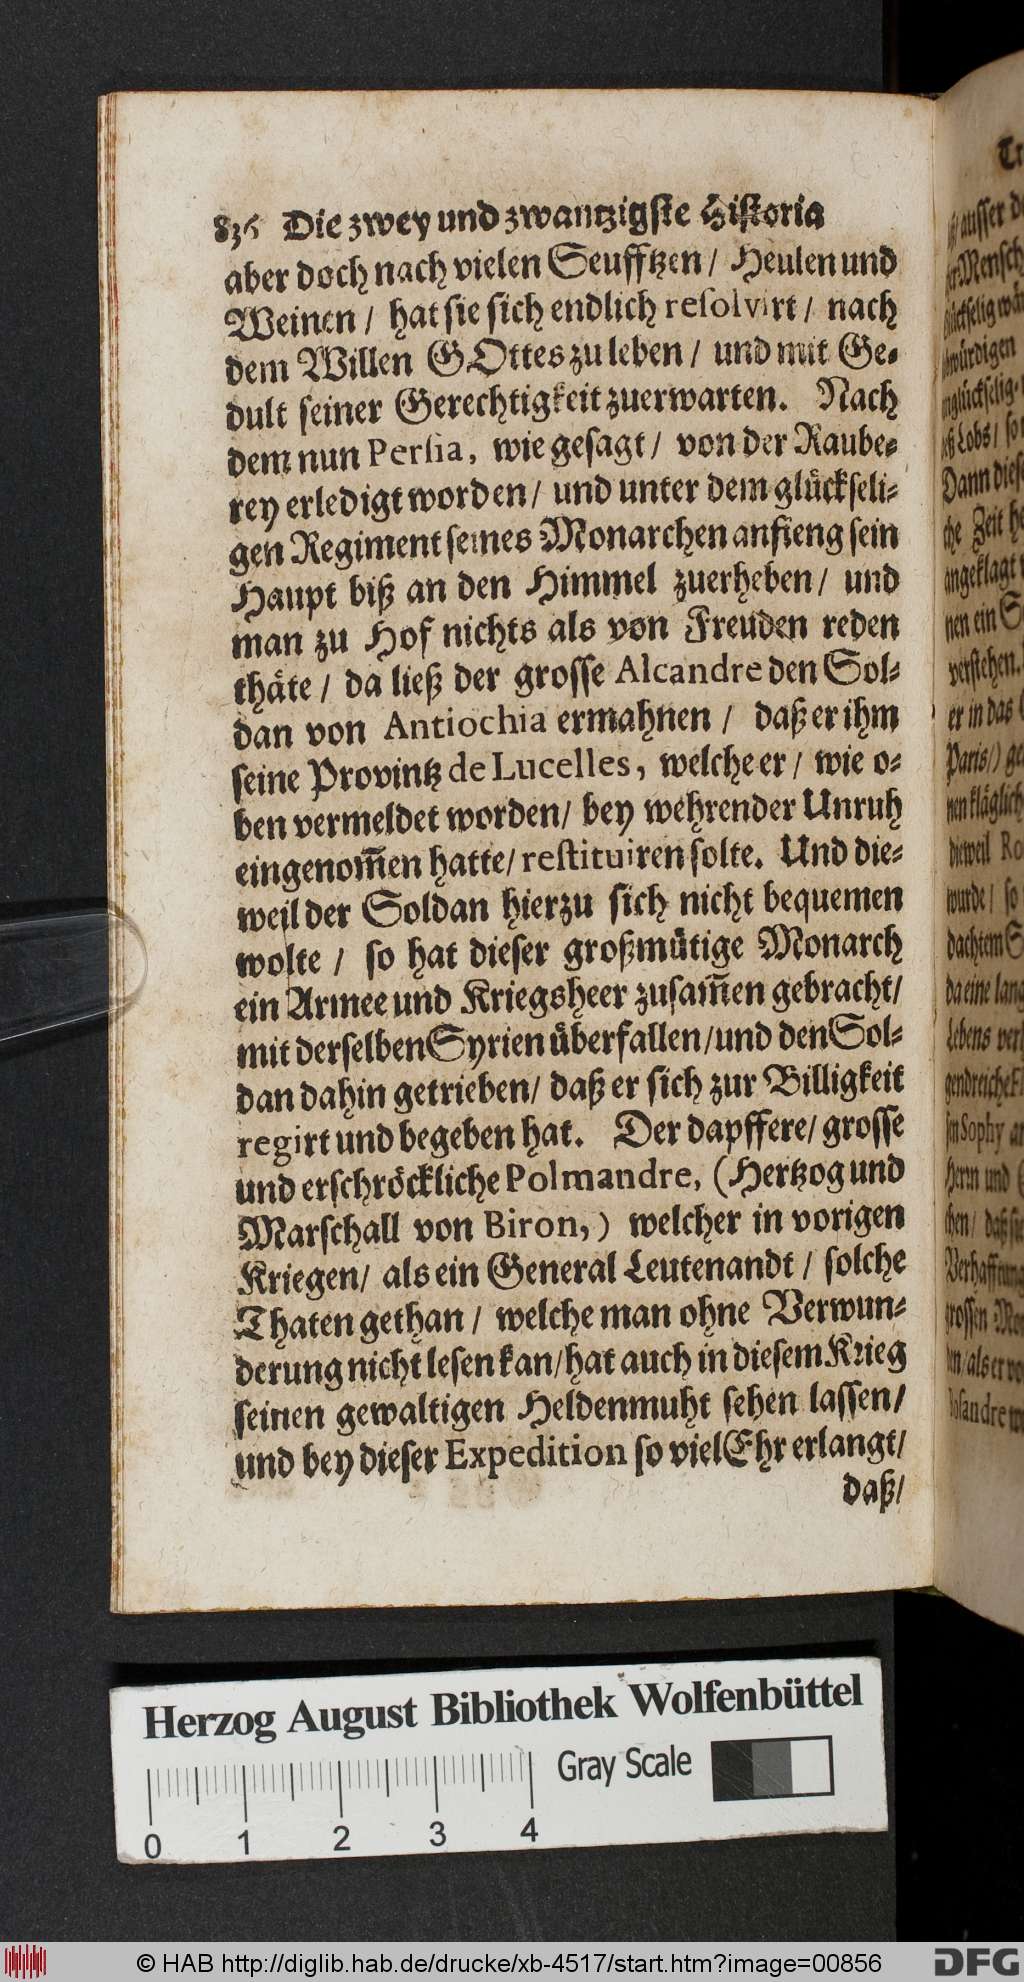 836 Die zwey und zwantzigste Historia
aber doch nach vielen Seufftzen / Heulen und
Weinen / hat sie sich endlich resolvirt / nach
dem Willen GOttes zu leben / und mit Ge-
dult seiner Gerechtigkeit zuerwarten. Nach
dem nun Persia, wie gesagt / von der Raube-
rey erledigt worden / und unter dem glückseli-
gen Regiment seines Monarchen anfieng sein
Haupt biß an den Himmel zuerheben / und
man zu Hof nichts als von Freuden reden
thäte / da ließ der grosse Alcandre den Sol-
dan von Antiochia ermahnen / daß er ihm
seine Provintz de Lucelles, welche er / wie o-
ben vermeldet worden / bey wehrender Unruh
eingenom̃en hatte / restituiren solte. Und die-
weil der Soldan hierzu sich nicht bequemen
wolte / so hat dieser großmütige Monarch
ein Armee und Kriegsheer zusam̃en gebracht /
mit derselben Syrien überfallen / und den Sol-
dan dahin getrieben / daß er sich zur Billigkeit
regirt und begeben hat. Der dapffere / grosse
und erschröckliche Polmandre, (Hertzog und
Marschall von Biron,) welcher in vorigen
Kriegen / als ein General Leutenandt / solche
Thaten gethan / welche man ohne Verwun-
derung nicht lesen kan / hat auch in diesem Krieg
seinen gewaltigen Heldenmuht sehen lassen /
und bey dieser Expedition so viel Ehr erlangt /
daß /
ausser
Mensch
würdigen
Lobs / so
Dann diese
che Zeit
angeklagt
nen ein
verstehen.
er in das
Paris /) ge
nen kläglich
dieweil Ro
wurde / so
dachtem
da eine lang
Lebens ver
gendreiche
sen Sophy
Herrn und
chen / daß sie
Verhaffung
grossen Mo
als er vo
Herzog August Bibliothek Wolfenbüttel
Gray Scale
0 1 2 3 4
© HAB http://diglib.hab.de/drucke/xb-4517/start.htm?image=00856
DFG